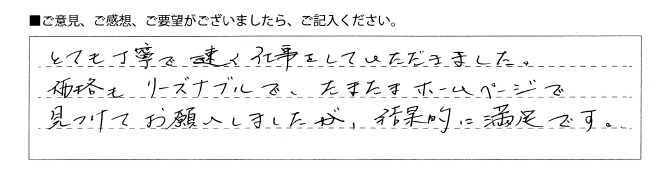 ■ご意見、ご感想、ご要望がございましたら、ご記入ください。
とても丁寧で速く仕事をしていただきました。
価格も リーズナブルで、たまたまホームページで
見つけてお願いしましたが、結果的に満足です。